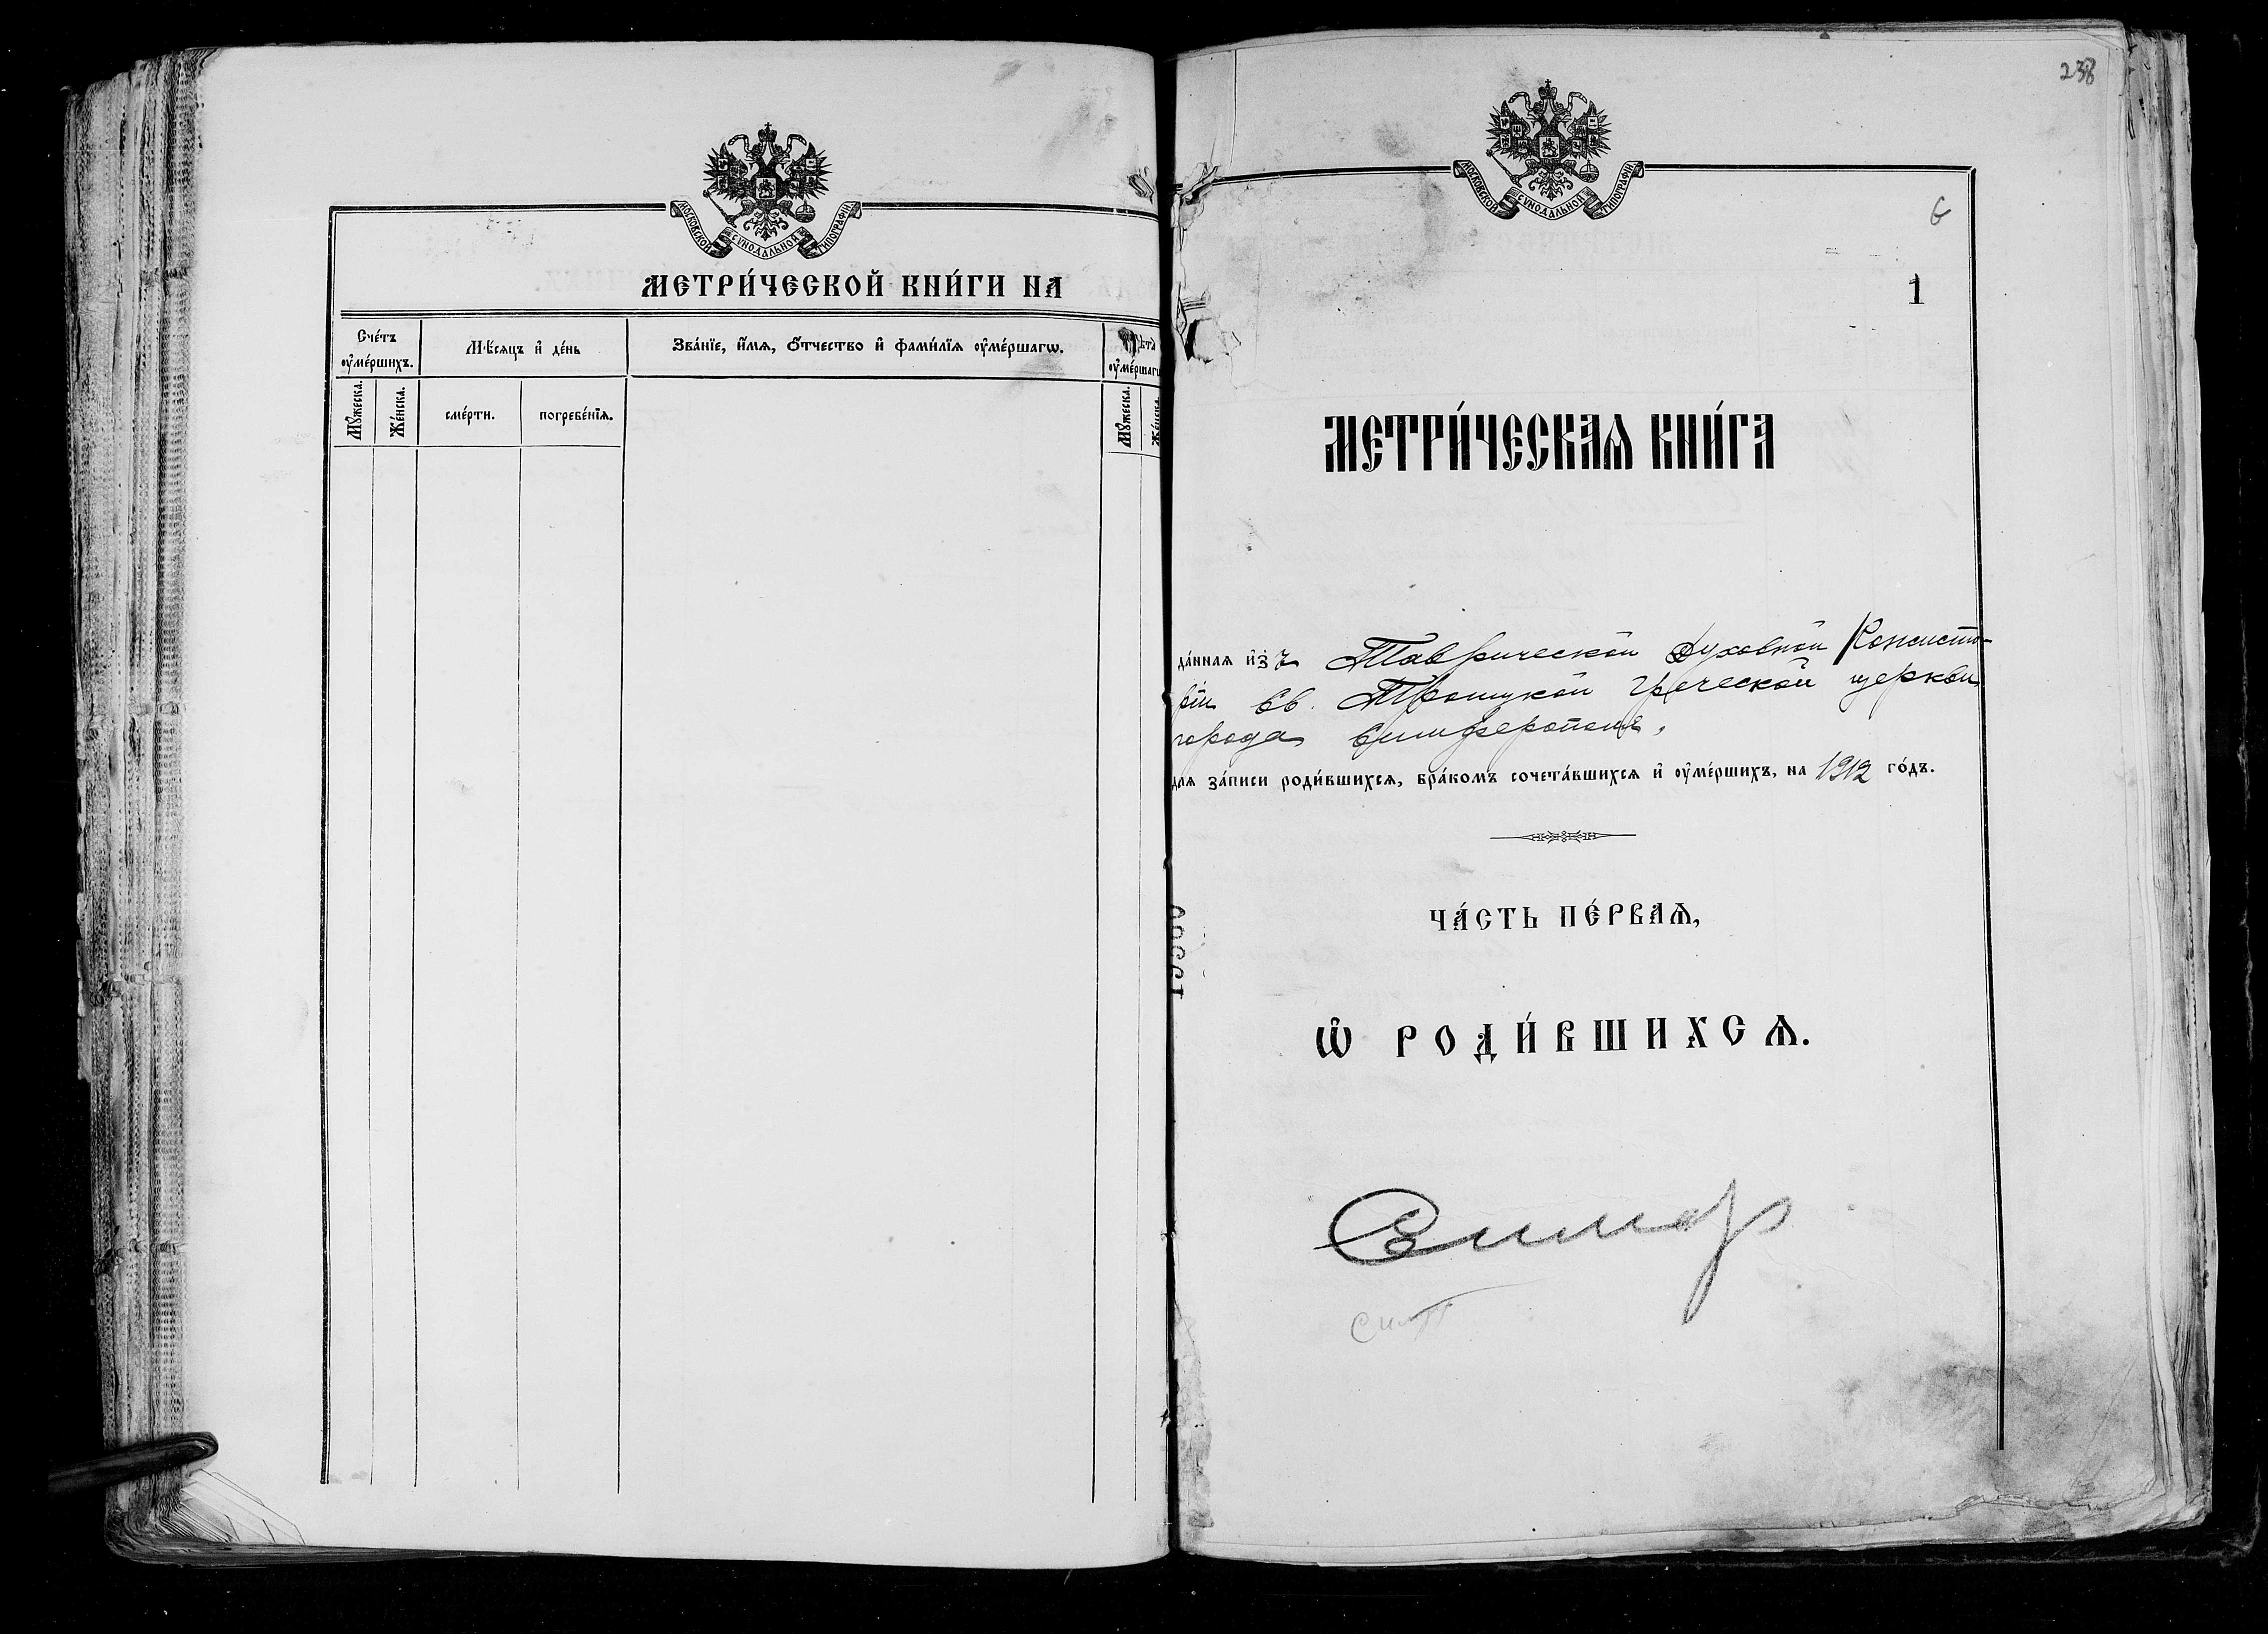 МОСКОВСКОЙ СѴНОДАЛЬНОЙ ТИПОГРАФІИ
МЕТРИ́ЧЕСКОЙ КНИ́ГИ НА
Сче́тъ ᲂу҆ме́ршихъ.
Мѣ́сяцъ и҆ де́нь
Зва́нїе, и҆́мѧ, ѻ҆́тчество и҆ фами́лїѧ ᲂу҆ме́ршагѡ.
Лѣ́та ᲂу҆ме́ршаг
Мꙋ́жеска.
Же́нска.
сме́рти.
погребе́нїѧ.
Мꙋ́жеска.
Же́нска.
238
МОСКОВСКОЙ СѴНОДАЛЬНОЙ ТИПОГРАФІИ
6
1
МЕТРИ́ЧЕСКАѦ КНИ́ГА
да́ннаѧ и҆зъ Таврической Духовной Консисто-
рiи Св. Троицкой Греческой церкви
города Симферополя,
для за́писи роди́вшихсѧ, бра́комъ сочета́вшихсѧ и҆ ᲂу҆ме́ршихъ, на 1912 го́дъ.
ЧА́СТЬ ПЕ́РВАѦ,
Ѡ҆ РОДИ́ВШИХСѦ.
Симф